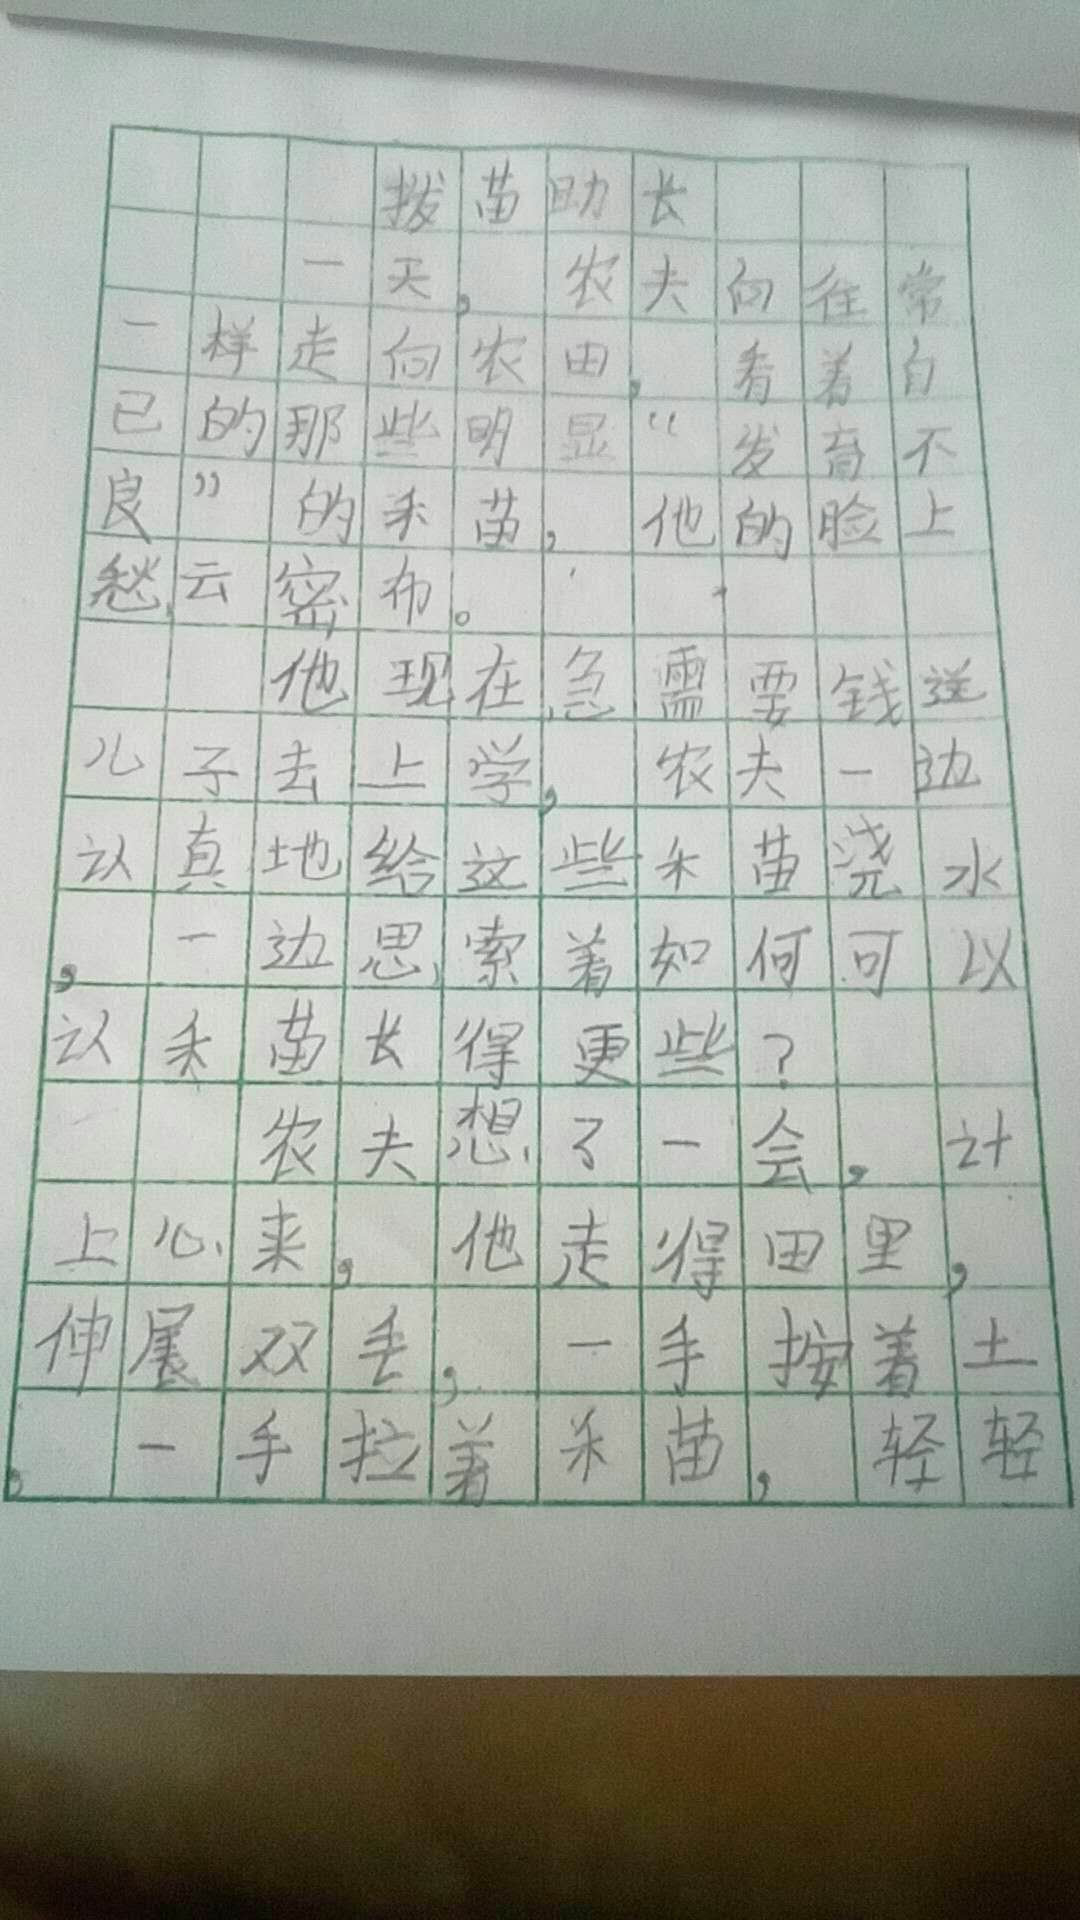 拨苗助长
一天，农夫向往常
一样走向农田，看着自
已的那些明显“发育不
良”的禾苗，他的脸上
愁云密布。
他现在急需要钱送
儿子去上学，农夫一边
认真地给这些禾苗浇水
，一边思索着如何可以
认禾苗长得更些？
农夫想了一会，计
上心来，他走得田里，
伸展双手，一手按着土
，一手拉着禾苗，轻轻